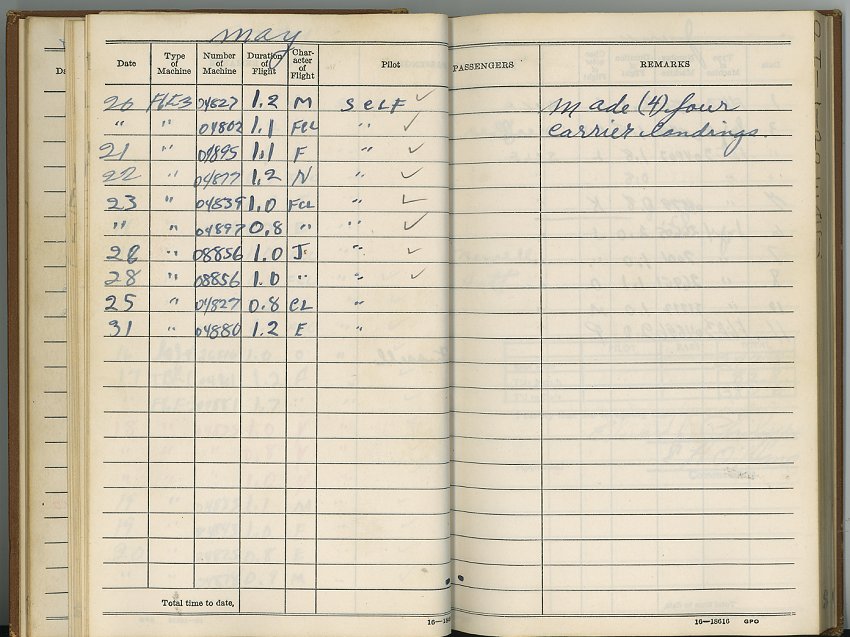 May
Date Type of Machine Number of Machine Duration of Flight Character of Flight Pilot PASSENGERS REMARKS
20 04827 1.2 M SELF ✓ Made (4) four
" " 04802 1.1 FCL " ✓ carrier landings.
21 " 04895 1.1 F " ✓
22 " 04877 1.2 N " ✓
23 " 04839 1.0 FCL " ✓
" " 04897 0.8 " " ✓
26 " 08856 1.0 J " ✓
28 " 08856 1.0 " " ✓
25 " 04827 0.8 CL "
31 " 04880 1.2 E "
Total time to date,
16—18616 GPO